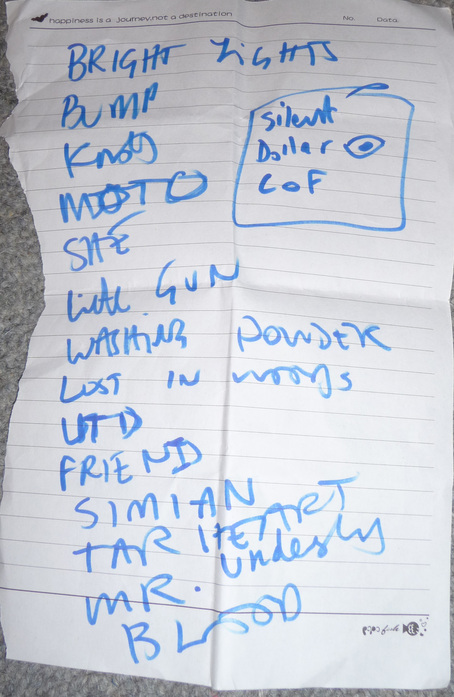 happiness is a journey,not a destination
No. Date:
BRIGHT LIGHTS
BUMP
Knots
MOTO
SHE
Little GUN
WASHING POWDER
LOST IN woods
UTD
FRIEND
SIMIAN
TAR HEART
MR. Undesly
BLOOD
Silent
Dollar
COF